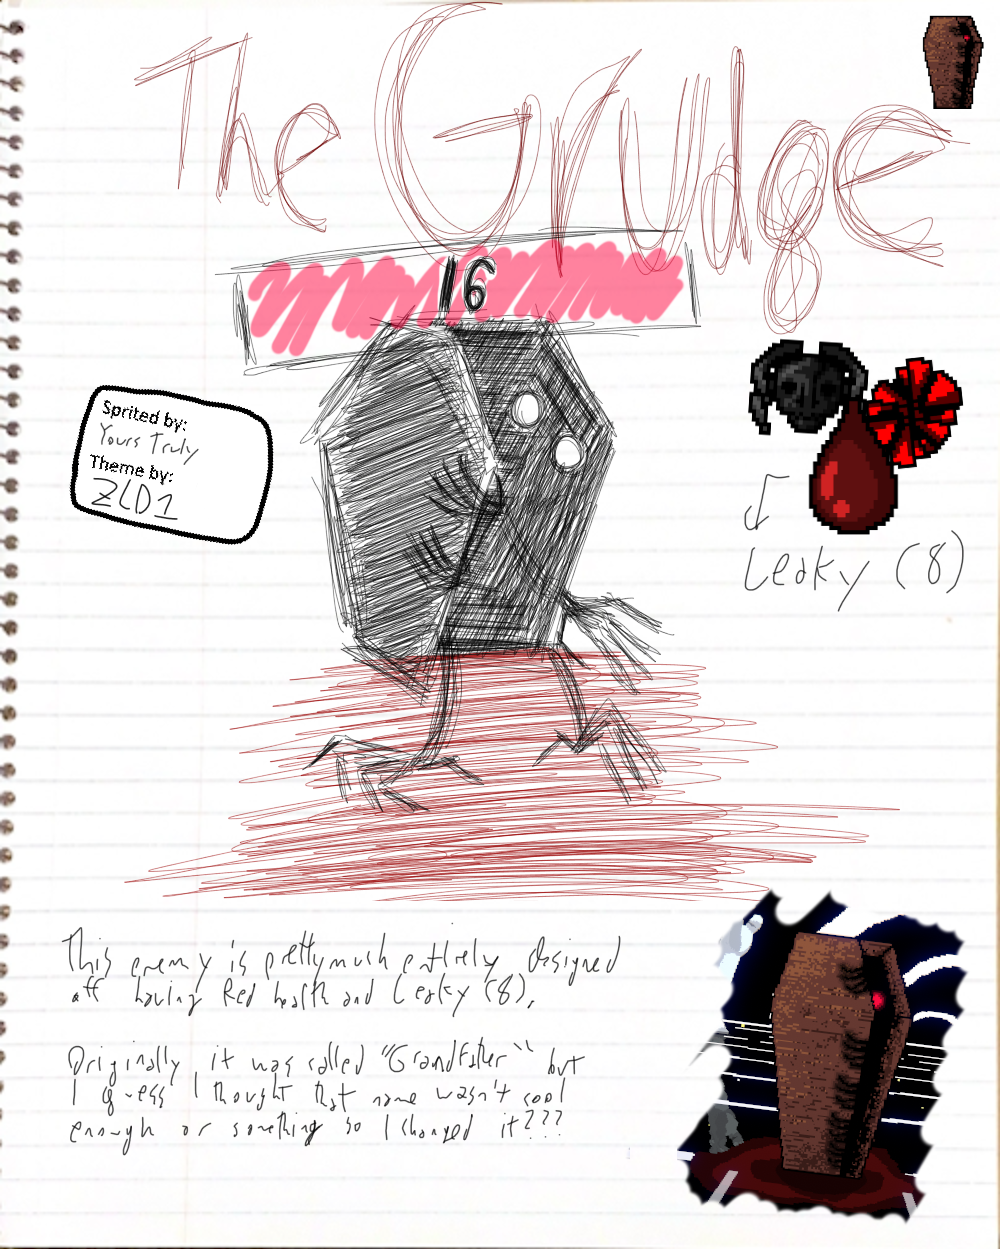 The Grudge
16
Sprited by:
Yours Truly
Theme by:
ZLD1
Leaky (8)
This enemy is prettymuch entirely designed
off having Red health and Leaky (8).
Originally it was called "Grandfather" but
I guess I thought that name wasn't cool
enough or something so I changed it???